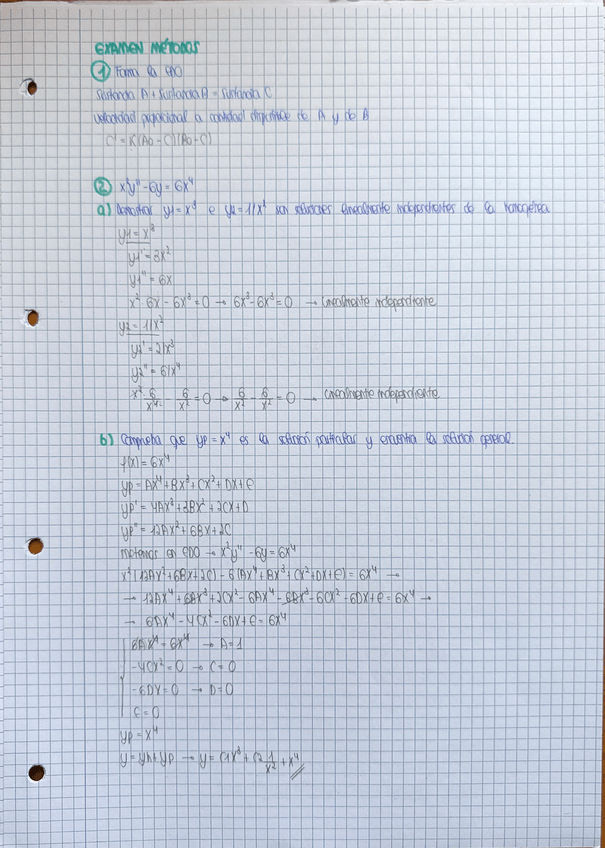 EXAMEN MÉTODOS
① Forma la EDO
Sustancia A + Sustancia B = Sustancia C
Velocidad proporcional a cantidad disponible de A y de B
C' = K(A0 - C)(B0 - C)
② x²y'' - 6y = 6x⁴
a) Demostrar y1 = x³ e y2 = 1/x² son soluciones linealmente independientes de la homogénea
y1 = x³
y1' = 3x²
y1'' = 6x
x² 6x - 6x³ = 0 → 6x³ - 6x³ = 0 → linealmente independiente
y2 = 1/x²
y2' = 2/x³
y2'' = 6/x⁴
x² 6/x⁴ - 6/x² = 0 → 6/x² - 6/x² = 0 → linealmente independiente
b) Comprueba que yp = x⁴ es la solución particular y encuentra la solución general.
f(x) = 6x⁴
yp = Ax⁴ + Bx³ + Cx² + Dx + E
yp' = 4Ax³ + 3Bx² + 2Cx + D
yp'' = 12Ax² + 6Bx + 2C
metemos en EDO → x²y'' - 6y = 6x⁴
x²(12Ax² + 6Bx + 2C) - 6(Ax⁴ + Bx³ + Cx² + Dx + E) = 6x⁴ →
→ 12Ax⁴ + 6Bx³ + 2Cx² - 6Ax⁴ - 6Bx³ - 6Cx² - 6Dx + E = 6x⁴ →
→ 6Ax⁴ - 4Cx² - 6Dx + E = 6x⁴
6Ax⁴ = 6x⁴ → A = 1
-4Cx² = 0 → C = 0
-6Dx = 0 → D = 0
E = 0
yp = x⁴
y = yh + yp → y = C1x³ + C2 1/x² + x⁴